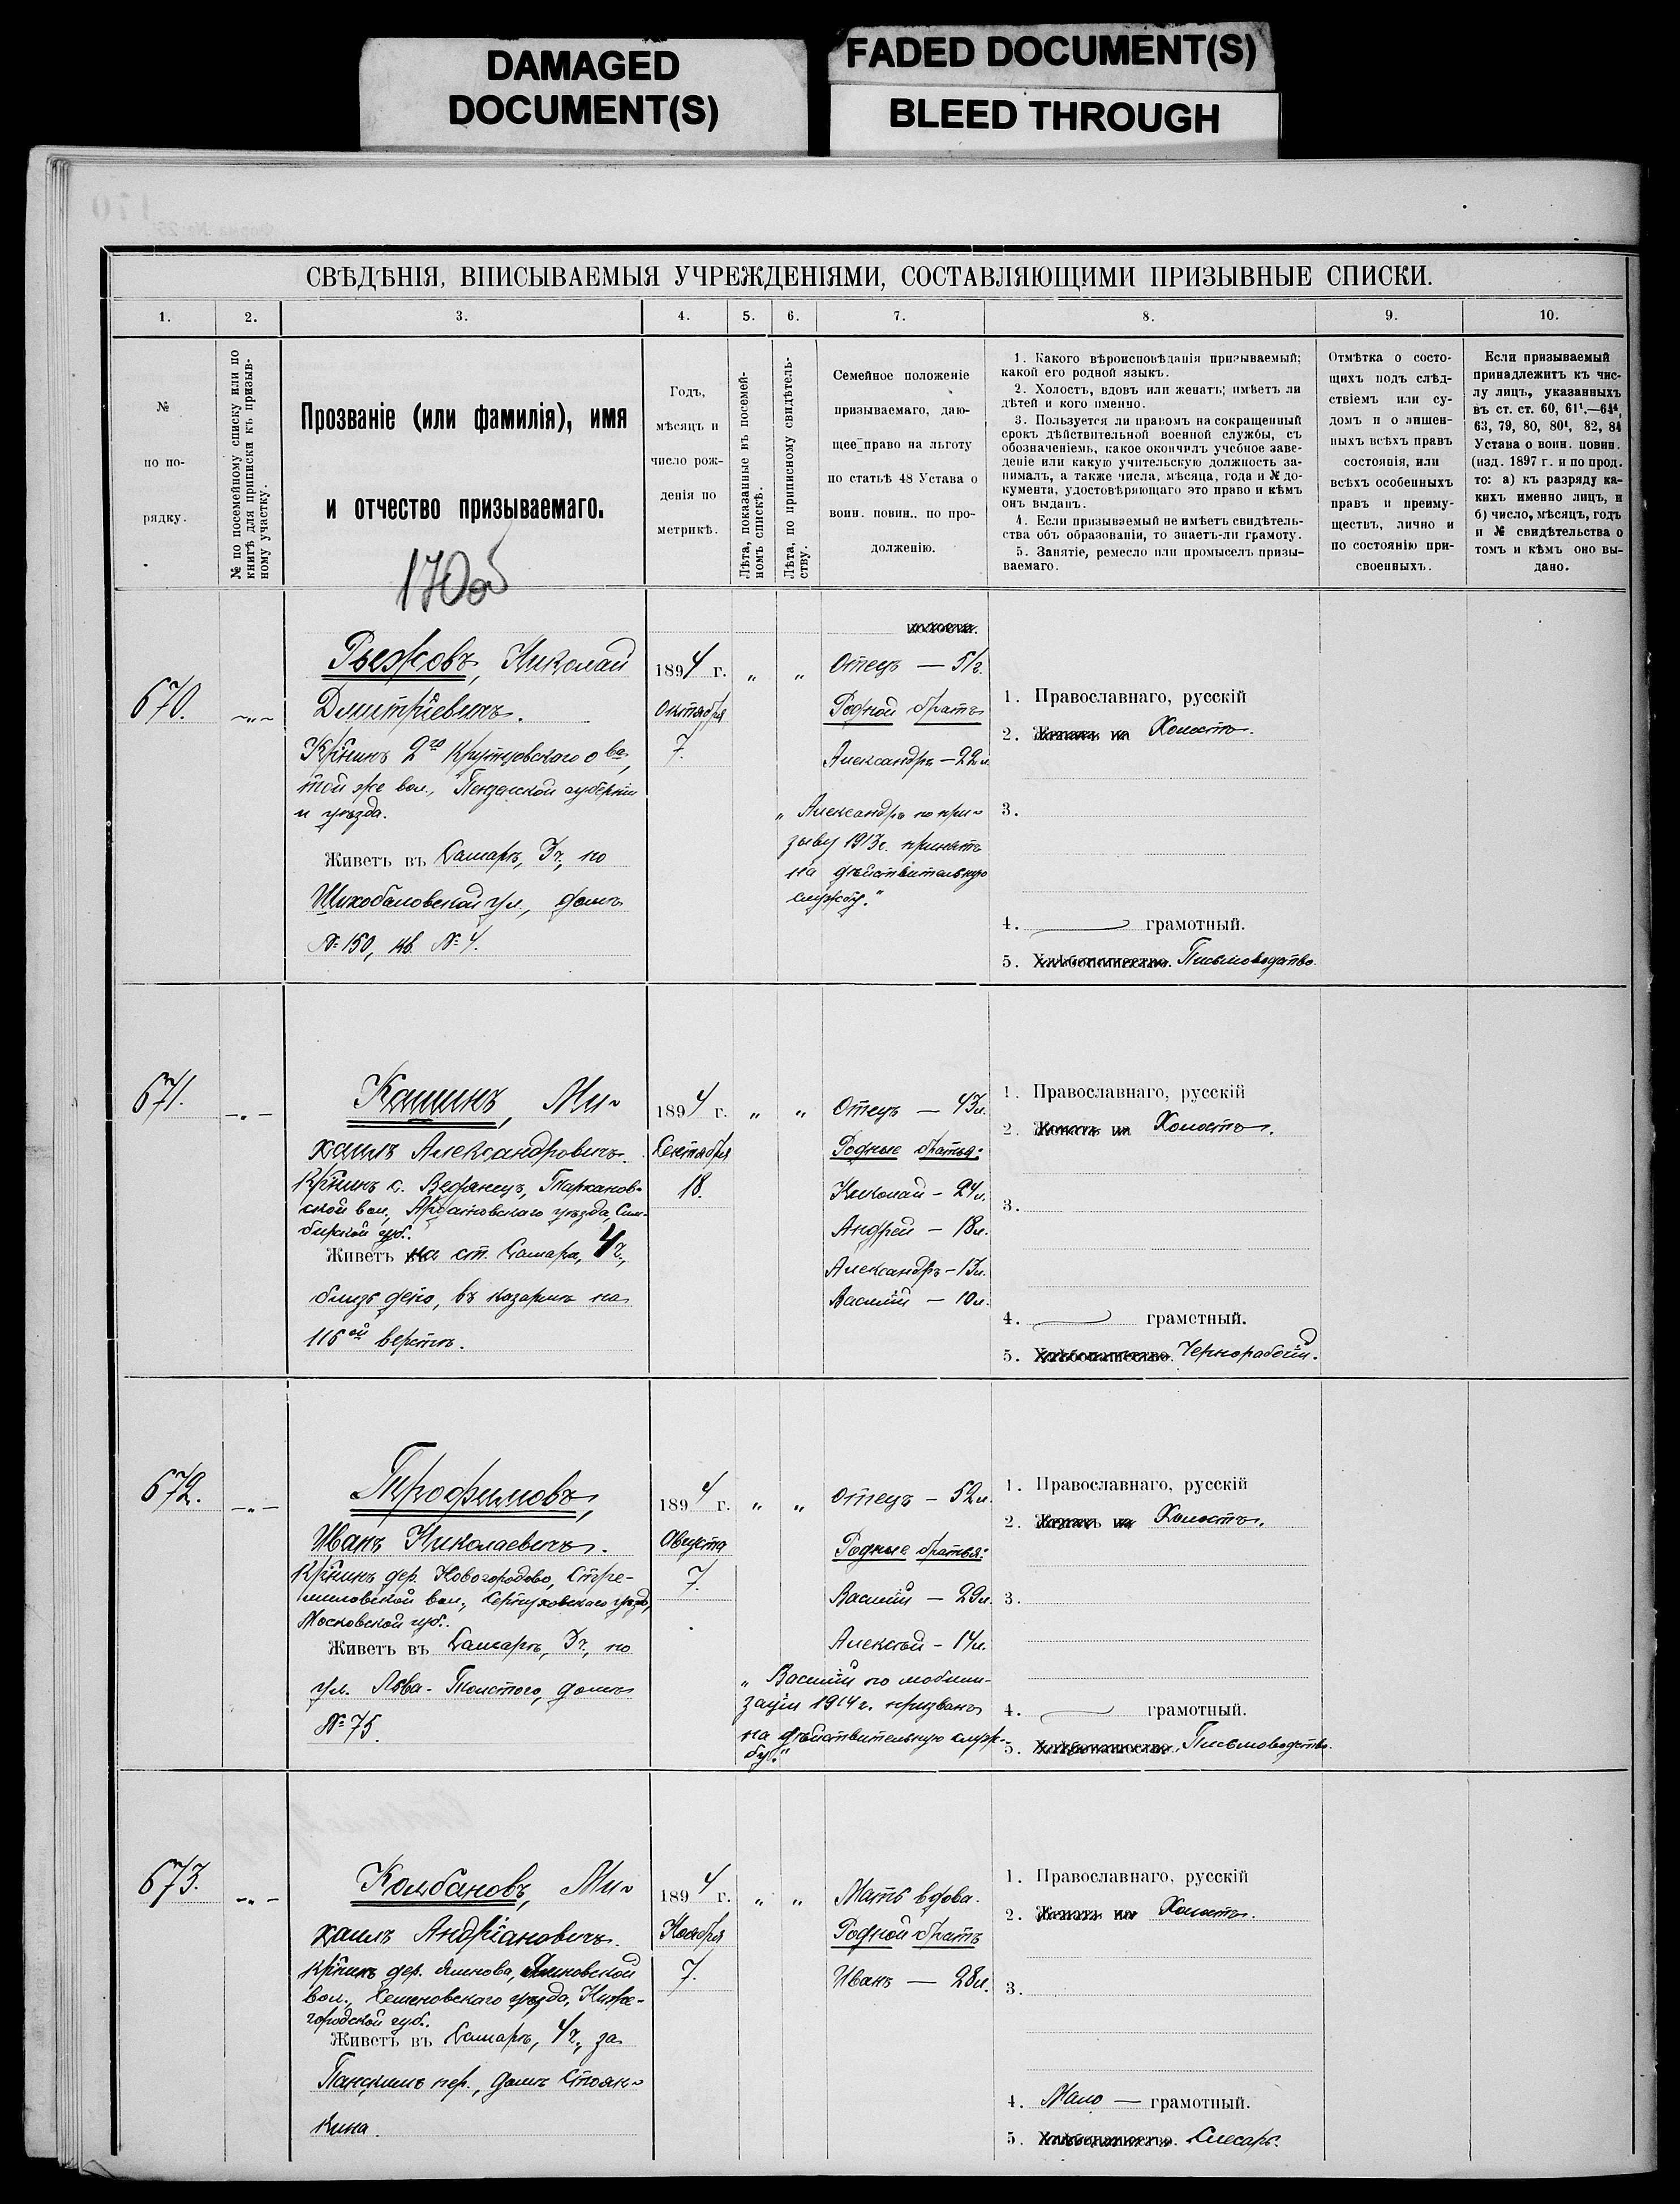 DAMAGED
DOCUMENT(S)
FADED DOCUMENT(S)
BLEED THROUGH
СВѢДѢНІЯ, ВПИСЫВАЕМЫЯ УЧРЕЖДЕНІЯМИ, СОСТАВЛЯЮЩИМИ ПРИЗЫВНЫЕ СПИСКИ.
1.
2.
3.
4.
5.
6.
7.
8.
9.
10.
№
по по-
рядку.
№ по посемейному списку или по
книгѣ для приписки къ призыв-
ному участку.
Прозваніе (или фамилія), имя
и отчество призываемаго.
170об
Годъ,
мѣсяцъ и
число рож-
денія по
метрикѣ.
Лѣта, показанные въ посемей-
номъ спискѣ.
Лѣта, по приписному свидѣтель-
ству.
Семейное положеніе
призываемаго, даю-
щее право на льготу
по статьѣ 48 Устава о
воин. повин.. по про-
долженію.
1. Какого вѣроисповѣданія призываемый;
какой его родной языкъ.
2. Холостъ, вдовъ или женатъ; имѣетъ ли
дѣтей и кого именно.
3. Пользуется ли правомъ на сокращенный
срокъ дѣйствительной военной службы, съ
обозначеніемъ, какое окончилъ учебное заве-
деніе или какую учительскую должность за-
нималъ, а также числа, мѣсяца, года и № до-
кумента, удостовѣряющаго это право и кѣмъ
онъ выданъ.
4. Если призываемый не имѣетъ свидѣтель-
ства объ образованіи, то знаетъ-ли грамоту.
5. Занятіе, ремесло или промыселъ призы-
ваемаго.
Отмѣтка о состо-
щихъ подъ слѣд-
ствіемъ или су-
домъ и о лишен-
ныхъ всѣхъ правъ
состоянія, или
всѣхъ особенныхъ
правъ и преиму-
ществъ, лично и
по состоянію при-
своенныхъ.
Если призываемый
принадлежитъ къ чис-
лу лицъ, указанныхъ
въ ст. ст. 60, 61¹.—64⁴,
63, 79, 80, 80¹, 82, 84
Устава о воин. повин.
(изд. 1897 г. и по прод.
то: а) къ разряду ка-
кихъ именно лицъ, и
б) число, мѣсяцъ, годъ
и № свидѣтельства о
томъ и кѣмъ оно вы-
дано.
670.
Рыжовъ, Николай
Дмитріевичъ.
Кр̃нинъ 2го Кривозерскаго о-ва,
той же вол., Пензенской губерніи
и уѣзда.
Живетъ въ Самарѣ, 3ч., по
Шихобаловской ул., домъ
№ 150, кв. № 4.
1894 г.
Октября
7.
Отецъ — 51г.
Родной братъ
Александръ — 22л.
„Александръ по при-
зыву 1913г. принятъ
на дѣйствительную
службу."
1. Православнаго, русскій
2. Холостъ.
3.
4. грамотный.
5. Хлѣбопашество. Письмоводство.
671.
Кашинъ, Ми-
хаилъ Александровичъ.
Кр̃нинъ с. Ведянецъ, Тархановс-
ской вол., Ардатовскаго уѣзда, Сим-
бирской губ.
Живетъ на ст. Самара, 4ч.,
близъ депо, въ казармѣ на
116ой верстѣ.
1894 г.
Сентября
18.
Отецъ — 43л.
Родные братья:
Николай — 24л.
Андрей — 18л.
Александръ — 13л.
Василій — 10л.
1. Православнаго, русскій
2. Холостъ.
3.
4. грамотный.
5. Хлѣбопашество. Чернорабочій.
672.
Трофимовъ,
Иванъ Николаевичъ.
Кр̃нинъ дер. Новогородово, Стре-
миловской вол., Серпуховскаго уѣзда,
Московской губ.
Живетъ въ Самарѣ, 3ч., по
ул. Льва-Толстого, домъ
№ 75.
1894 г.
Августа
7.
Отецъ — 52л.
Родные братья:
Василій — 29л.
Алексѣй — 14л.
„Василій по мобили-
заціи 1914г. призванъ
на дѣйствительную служ-
бу."
1. Православнаго, русскій
2. Холостъ.
3.
4. грамотный.
5. Хлѣбопашество. Письмоводство.
673.
Колбановъ, Ми-
хаилъ Андріановичъ.
Кр̃нинъ дер. Ямнова,
вол., Семеновскаго уѣзда, Ниже-
городской губ.
Живетъ въ Самарѣ, 4ч., за
Панскимъ пер., домъ Стояк-
кина.
1894 г.
Ноября
7.
Мать вдова.
Родной братъ
Иванъ — 28л.
1. Православнаго, русскій
2. Холостъ.
3.
4. Мало — грамотный.
5. Хлѣбопашество. Слесарь.